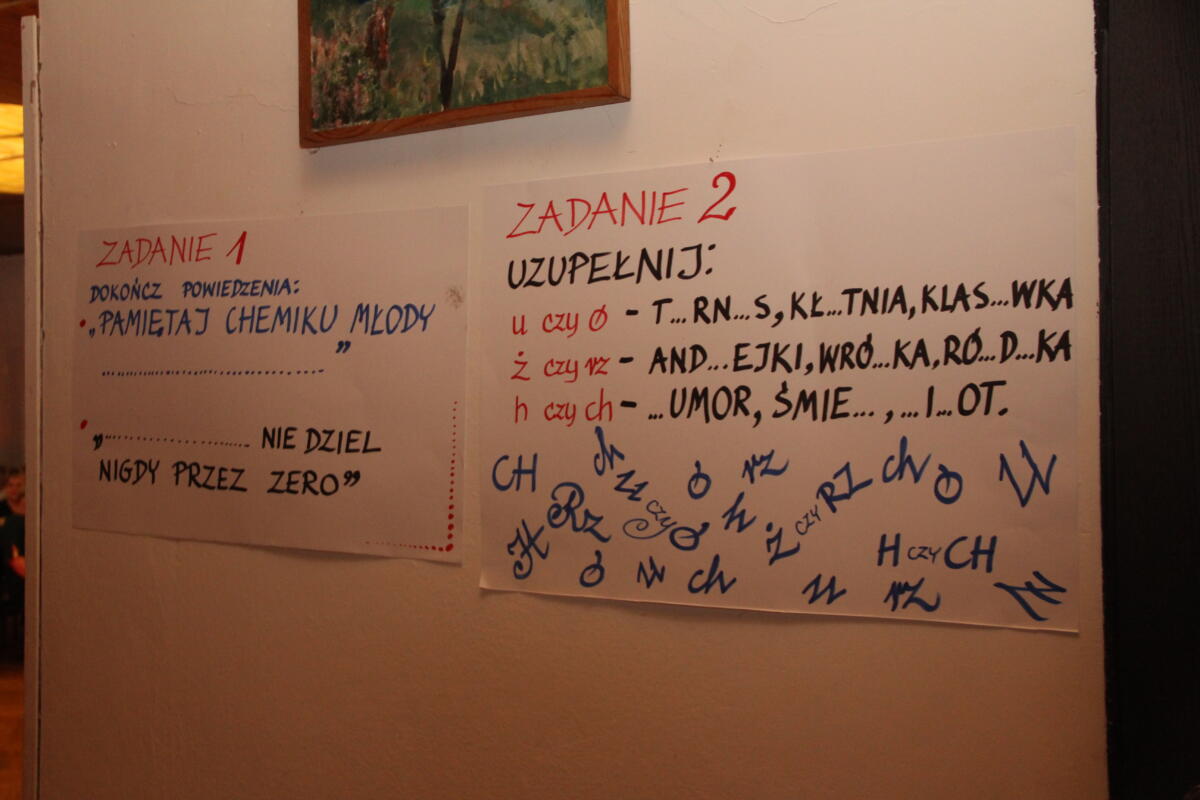 ZADANIE 1
DOKOŃCZ POWIEDZENIA:
„PAMIĘTAJ CHEMIKU MŁODY
..............................................”
„........................ NIE DZIEL
NIGDY PRZEZ ZERO”
ZADANIE 2
UZUPEŁNIJ:
u czy ó - T...RN...S, KŁ...TNIA, KLAS...WKA
ż czy rz - AND...EJKI, WRÓ...KA, RÓ...D...KA
h czy ch - ...UMOR, ŚMIE..., ...I...OT.
CH ch ó rz ch Ó U
Rz czy Ó h Ż czy RZ
H ó u ch u H czy CH
rz